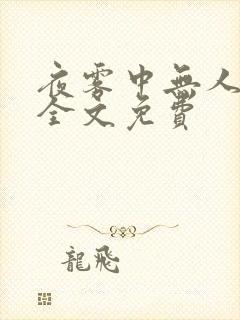 夜雾中無人
全文免費
龍飛